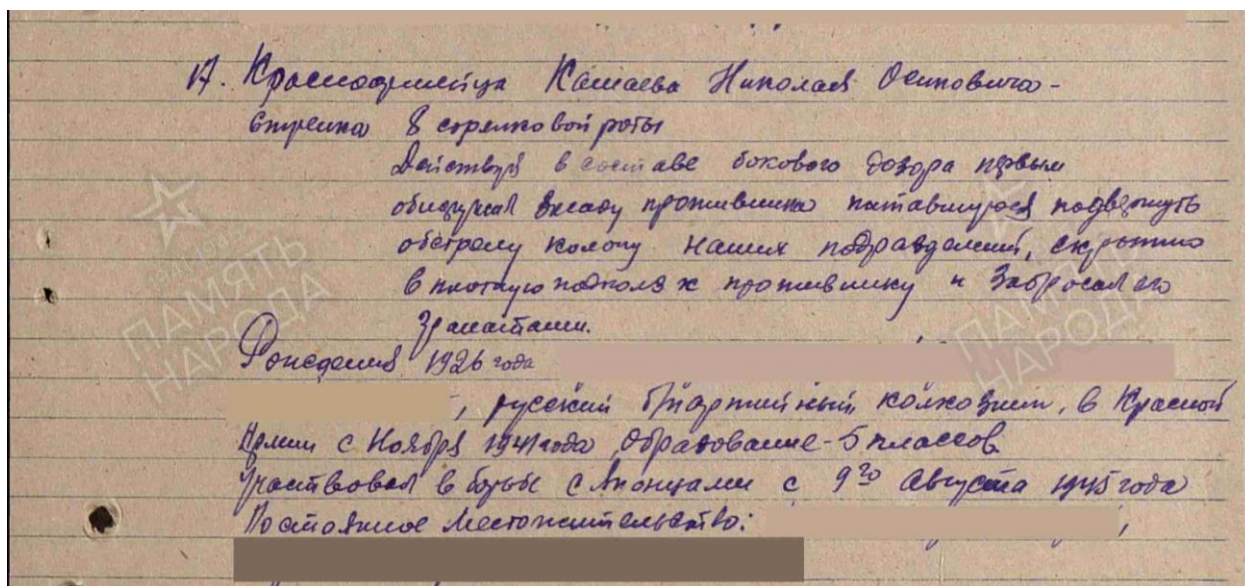 17. Красноармейца Камаева Николая Осиповича -
Стрелка 8 стрелковой роты
Действуя в составе бокового дозора первым
обнаружил засаду противника пытавшуюся подвергнуть
обстрелу колону наших подразделений, скрытно
в плотную подполз к противнику и забросал его
гранатами.
Рождения 1926 года
, русский б/партийный колхозник, в Красной
Армии с Ноября 1941 года, Образование - 5 классов
Участвовал в борьбе с Японцами с 9го Августа 1945 года
Постоянное местожительство:
ПАМЯТЬ
НАРОДА
ПАМЯТЬ
НАРОДА